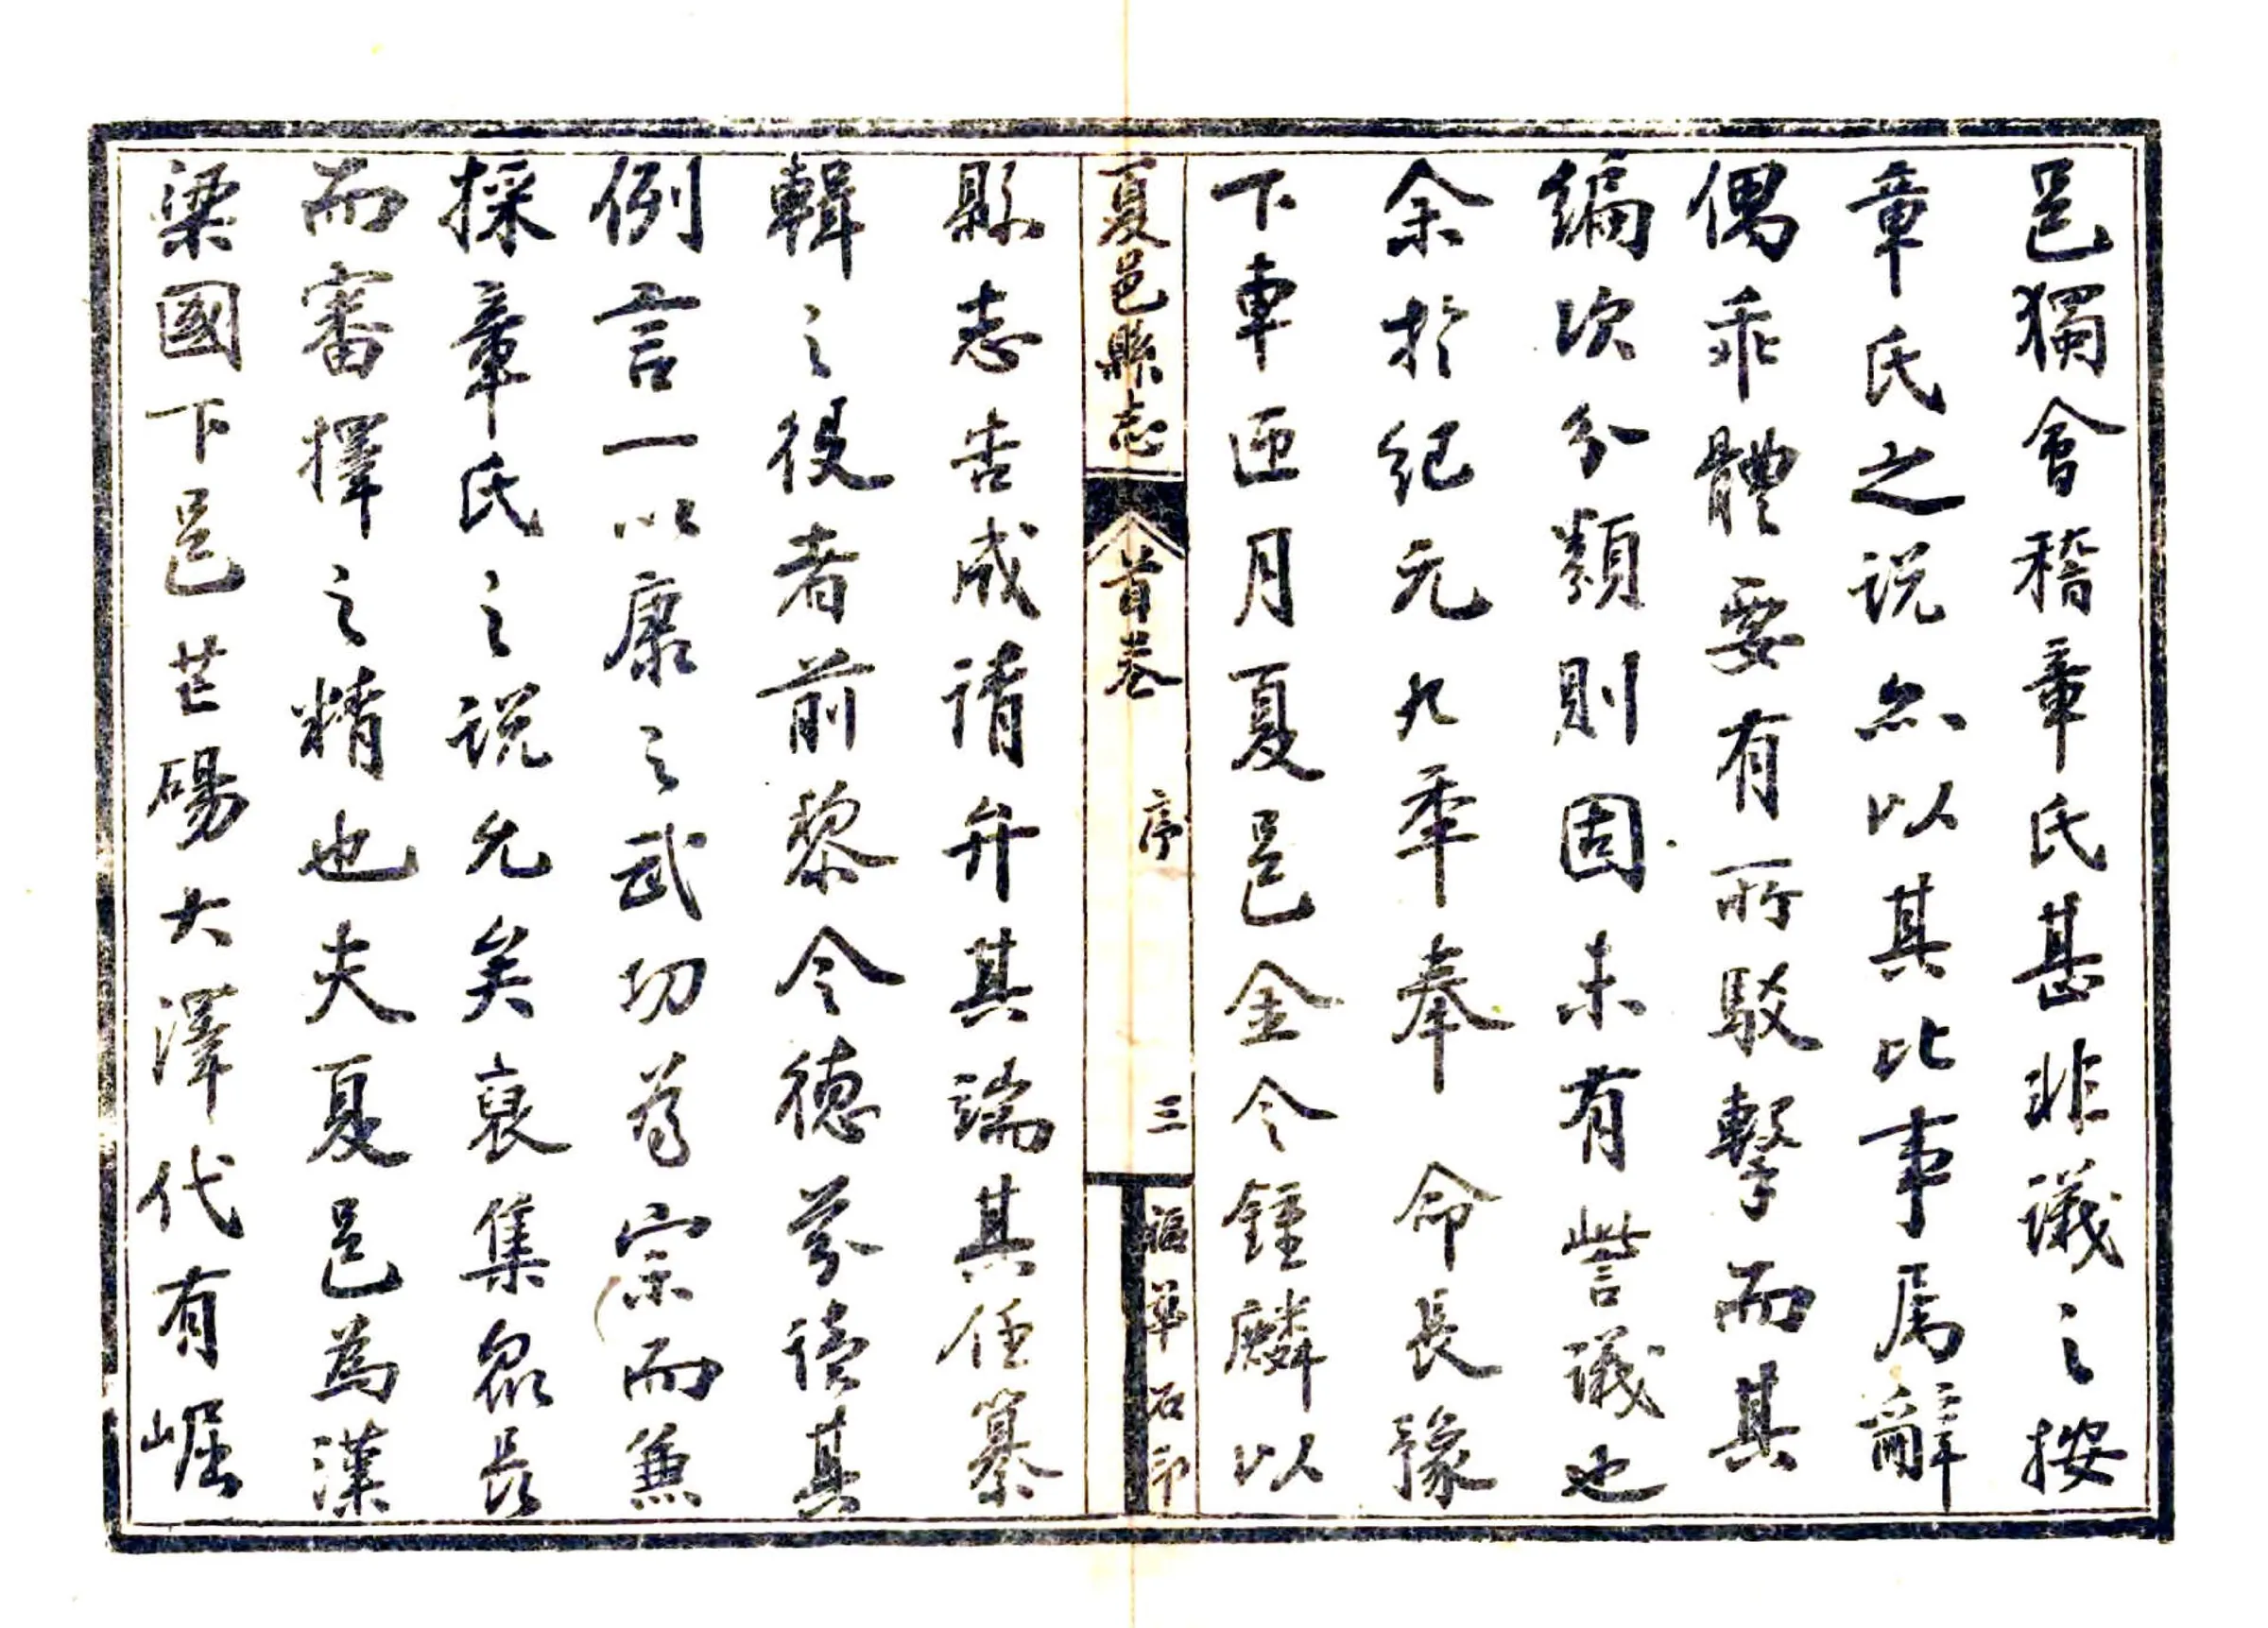 邑獨會稽章氏甚非議之按
章氏之说亦以其比事属辭
偶乖體要有所駁擊而其
編次分類則固未有訾議也
余於纪元九季奉 命長豫
下車匝月夏邑金令鍾麟以
夏邑縣志 首卷 序 三 石印
縣志告成請弁其端其任纂
輯之役者前黎令德芬读其
例言一以康之武功为宗而兼
採章氏之说允矣裒集眾长
而審擇之精也夫夏邑為漢
梁國下邑芒碭大澤代有崛